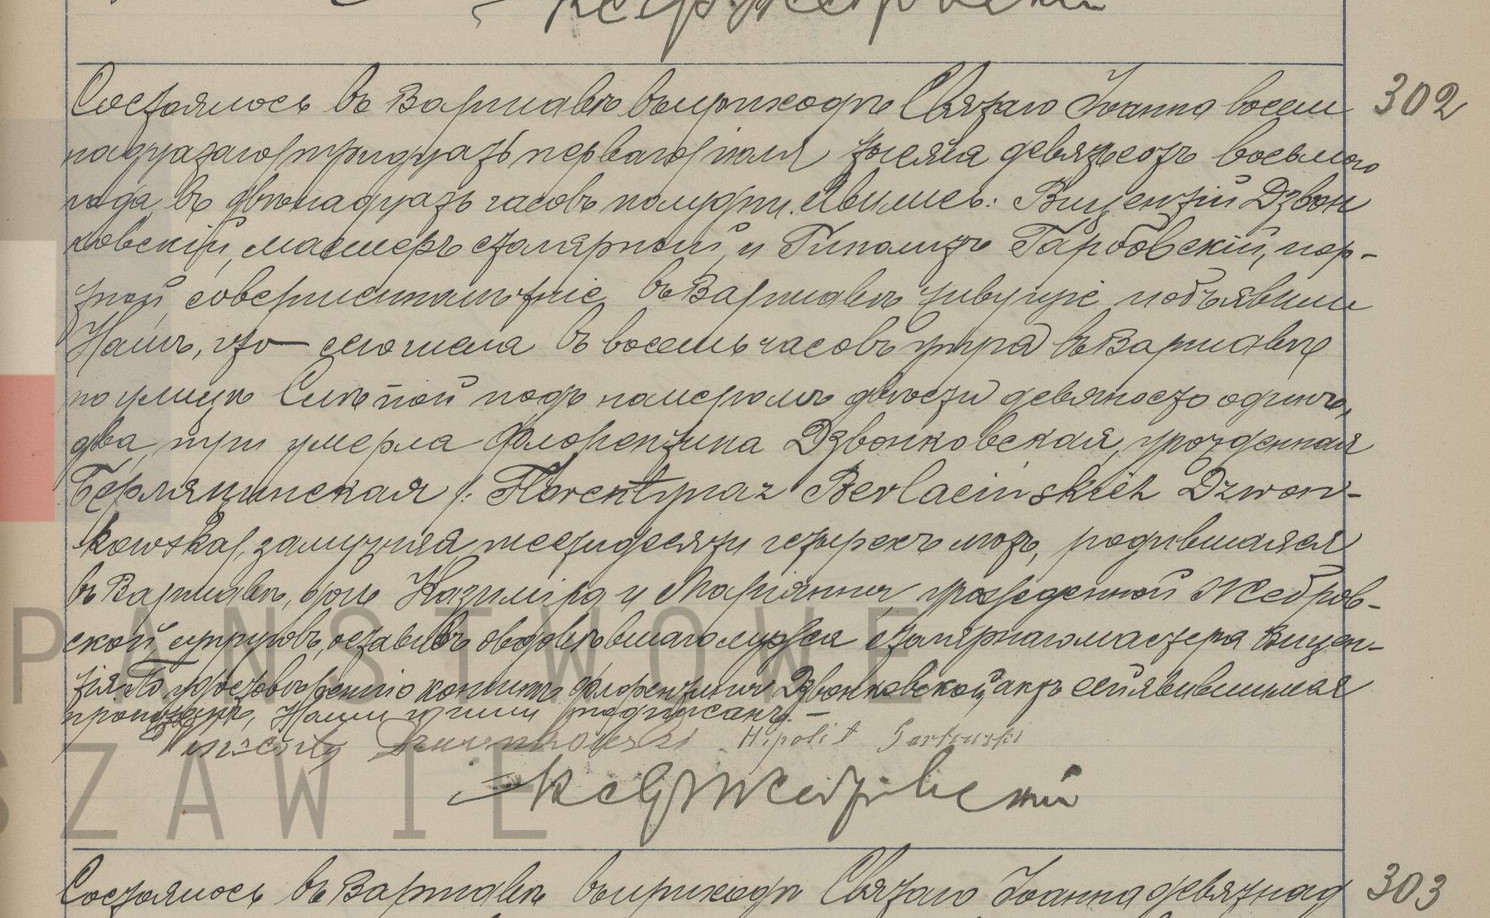 302
Состоялось въ Варшавѣ въ приходѣ Святаго Іоанна восем
надцатаго/тридцать перваго/ іюля тысяча девятьсотъ восьмого
года въ двѣнадцать часовъ полудни. Явились: Вицентій Дзвон
ковскій, мастеръ столярной, и Гиполитъ Гарбовскій, пор-
тной, совершеннолѣтніе, въ Варшавѣ живущіе и объявили
Намъ, что сего числа въ восемь часовъ утра въ Варшавѣ
по улицѣ Слѣпой подъ номеромъ двѣсти девяносто одинъ,
два, три умерла Флорентина Дзвонковская, урожденная
Берлящинская /: Florentyna z Berlacińskich Dzwon-
kowska/, замужняя, шестидесяти четырехъ лѣтъ, родившаяся
въ Варшавѣ, дочь Казиміра и Маріянны урожденной Жебров-
ской супруговъ, оставивъ овдовѣвшаго мужа столярнаго мастера Вицен-
тія. По удостовѣренію кончины Флорентины Дзвонковской, актъ сей явившимся
прочитанъ, Нами и ими подписанъ.—
Wincenty Dzwonkowski Hipolit Garbowski
PAŃSTWOWE
SZAWIE
303
Состоялось въ Варшавѣ въ приходѣ Святаго Іоанна девятнад